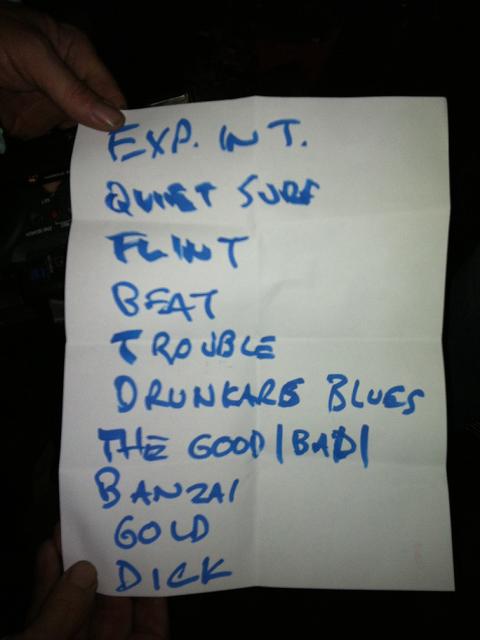 EXP. INT.
QUIET SURF
FLINT
BEAT
TROUBLE
DRUNKARE BLUES
THE GOOD/BAD/
BANZAI
GOLD
DICK